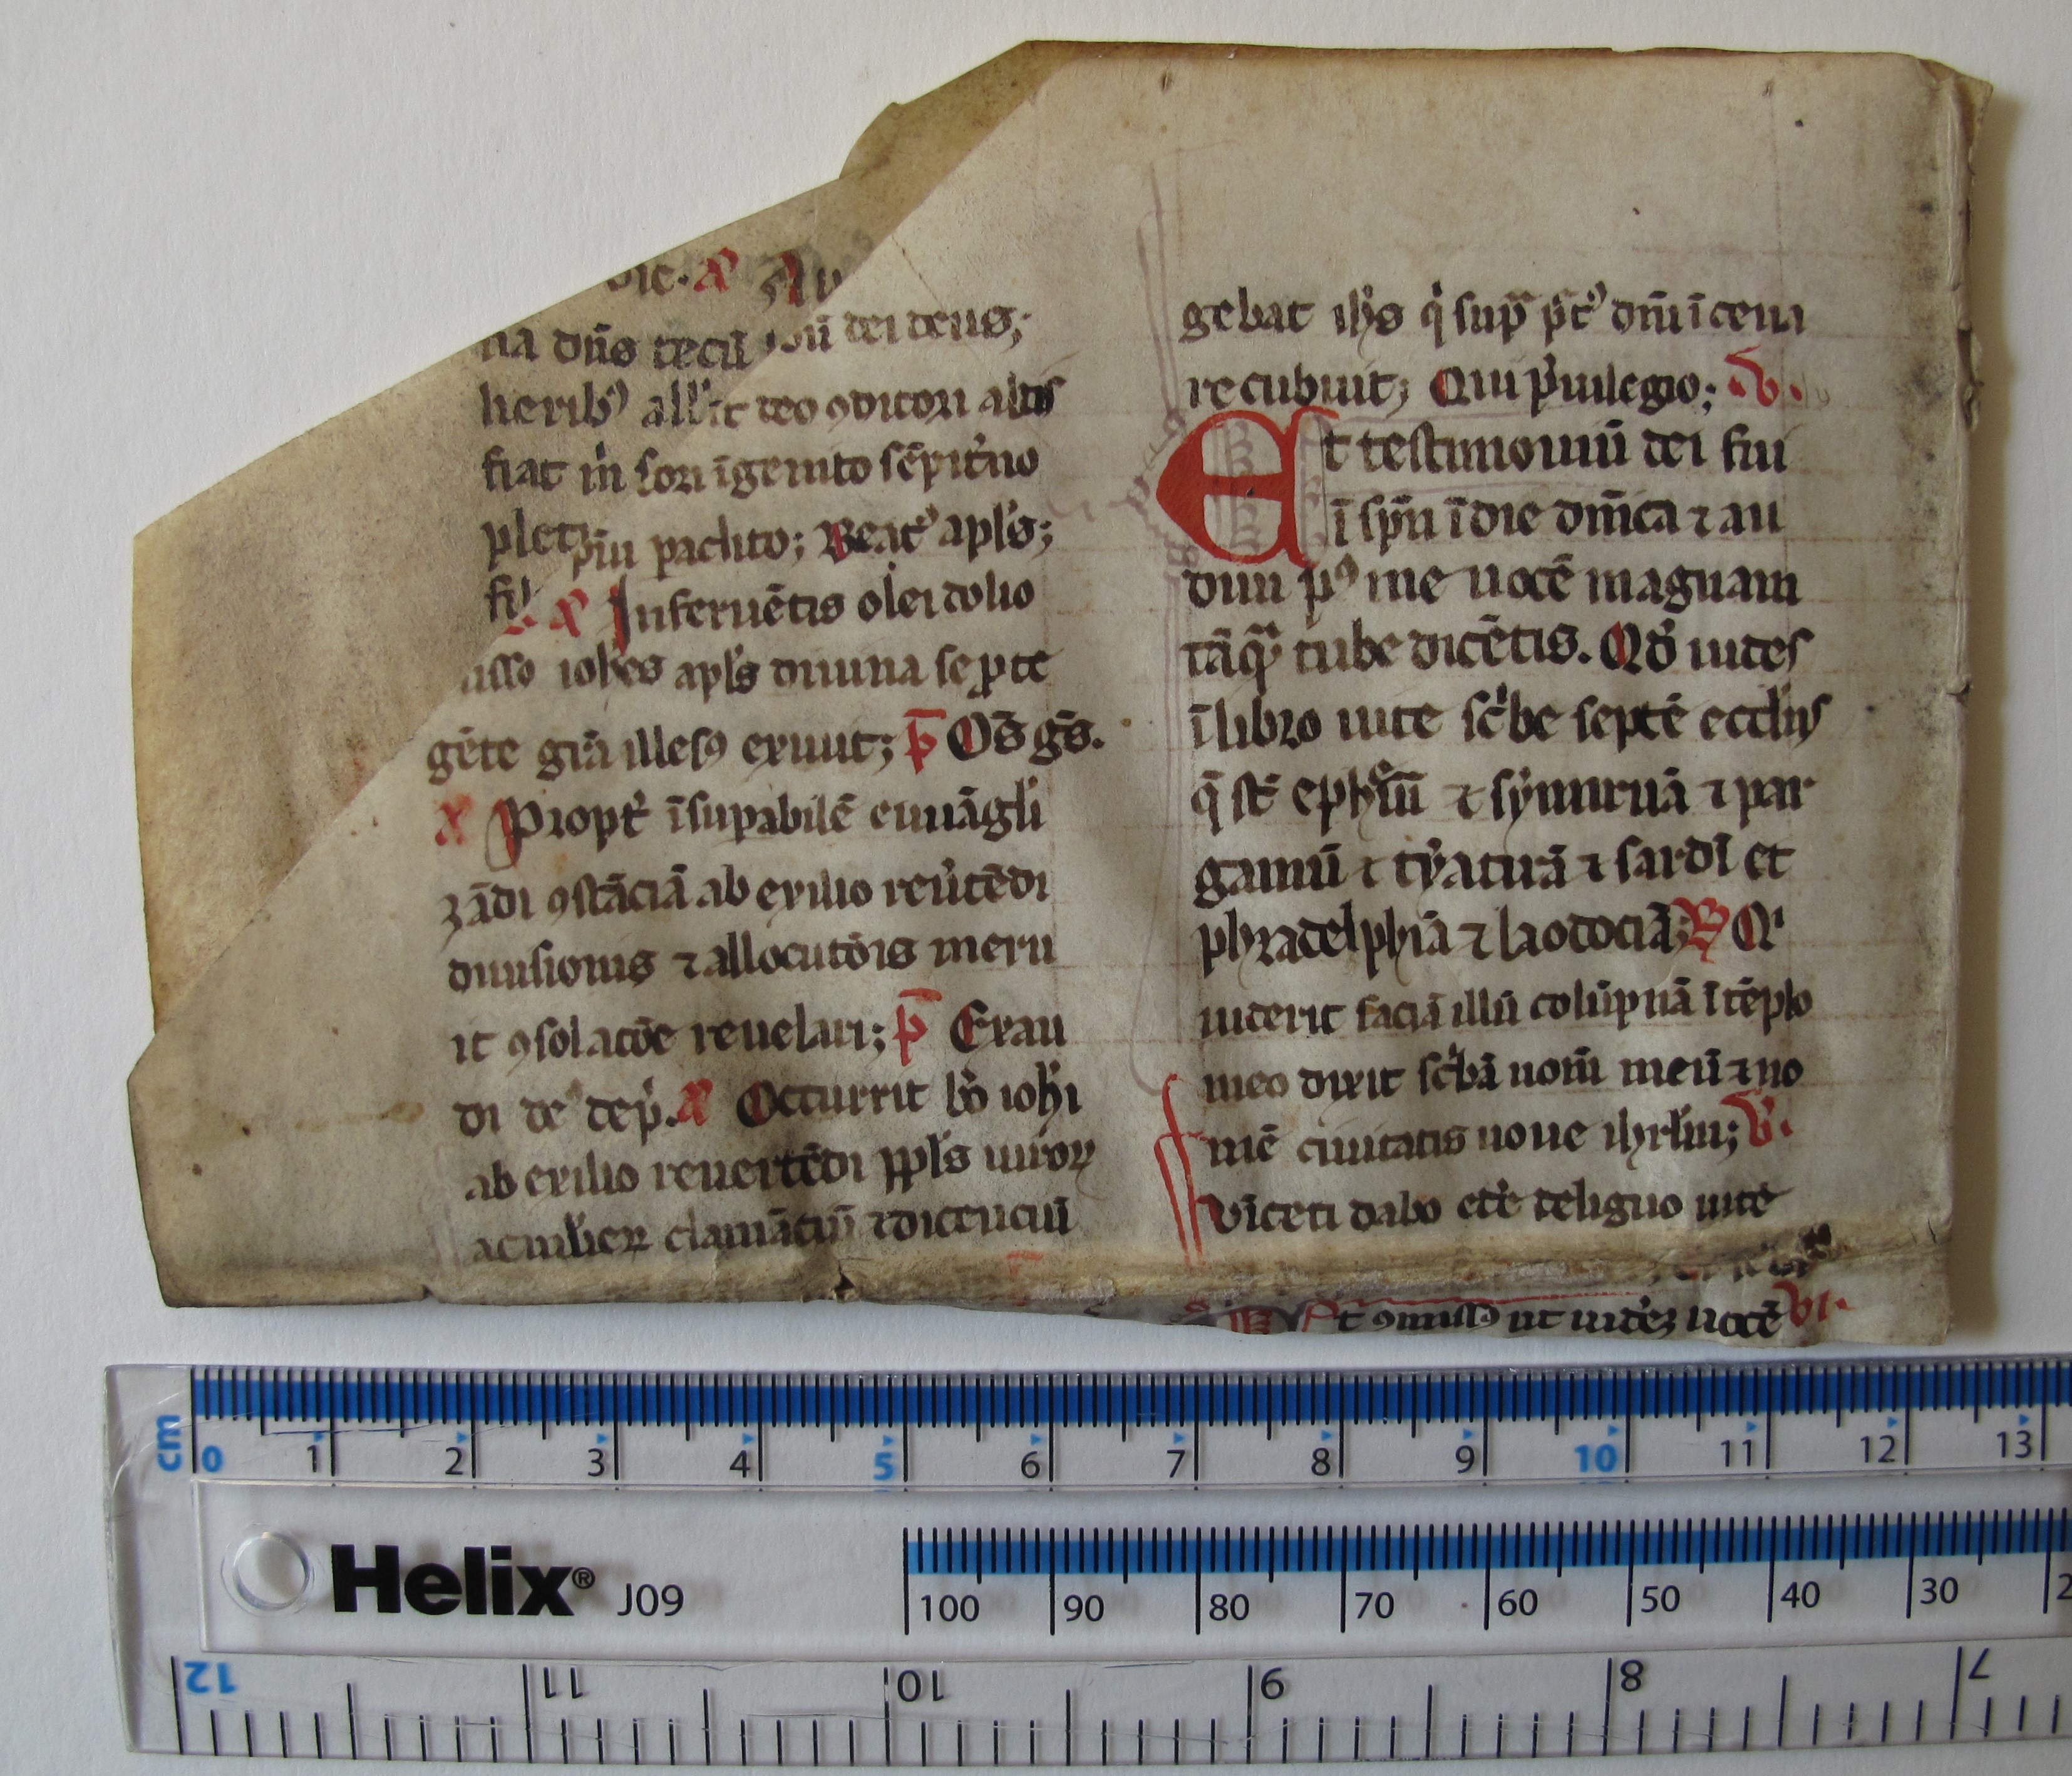 dic.
na dn̄s tecū
dei deus;
herib⁹ all
deo ꝯditori
fiat in sori īgenito sēpit'no
plet
paclito; Beat⁹ apl's;
Inferuētis olei dolio
isso ioh'es apl's diuina se ꝓte
gēte gr̄a illesꝯ exiuit; p̄ Om̄s gs̄.
Propt' īsupabilē euuāgli
zādi ꝯstāciā ab exilio reu'tēdi
diuisionis ⁊ allocutōis meru
it ꝯsolatōe reuelari; p̄ Exau
di de⁹ dep'. Occurrit bō ioh'i
ab exilio reuertēdi ppl's uiroꝝ
ac mulieꝝ clamāciū ⁊ dicenciū
gebat ih's q' sup pct⁹ dn̄i ī cena
recubuit; Qui p'uilegio; v.
Et testimoniū dei fui
ī sp̄u ī die dn̄ica ⁊ au
diui pꝯ me uocē magnam
tāqᵃ tube dicētis. Qd' uides
ī libro uite sc'be septē eccliis
q̄ st̄ eph'iū ⁊ sȳmirnā ⁊ par
gamū ⁊ tȳatirā ⁊ sardī et
phyladelphiā ⁊ laodociā; ℟ Qⁱ
uicerit faciā illū colūpnā ī tēplo
meo dixit sc'bā nom̄ meū ⁊ no
mē ciuitatis noue ihrl'm; v.
Vīceti dabo ed'e de ligno uite
t ꝯuersꝯ ut uideꝫ uocē vi.
cm
0 1 2 3 4 5 6 7 8 9 10 11 12 13
Helix® J09
100 90 80 70 60 50 40 30 2
12 11 10 9 8 7